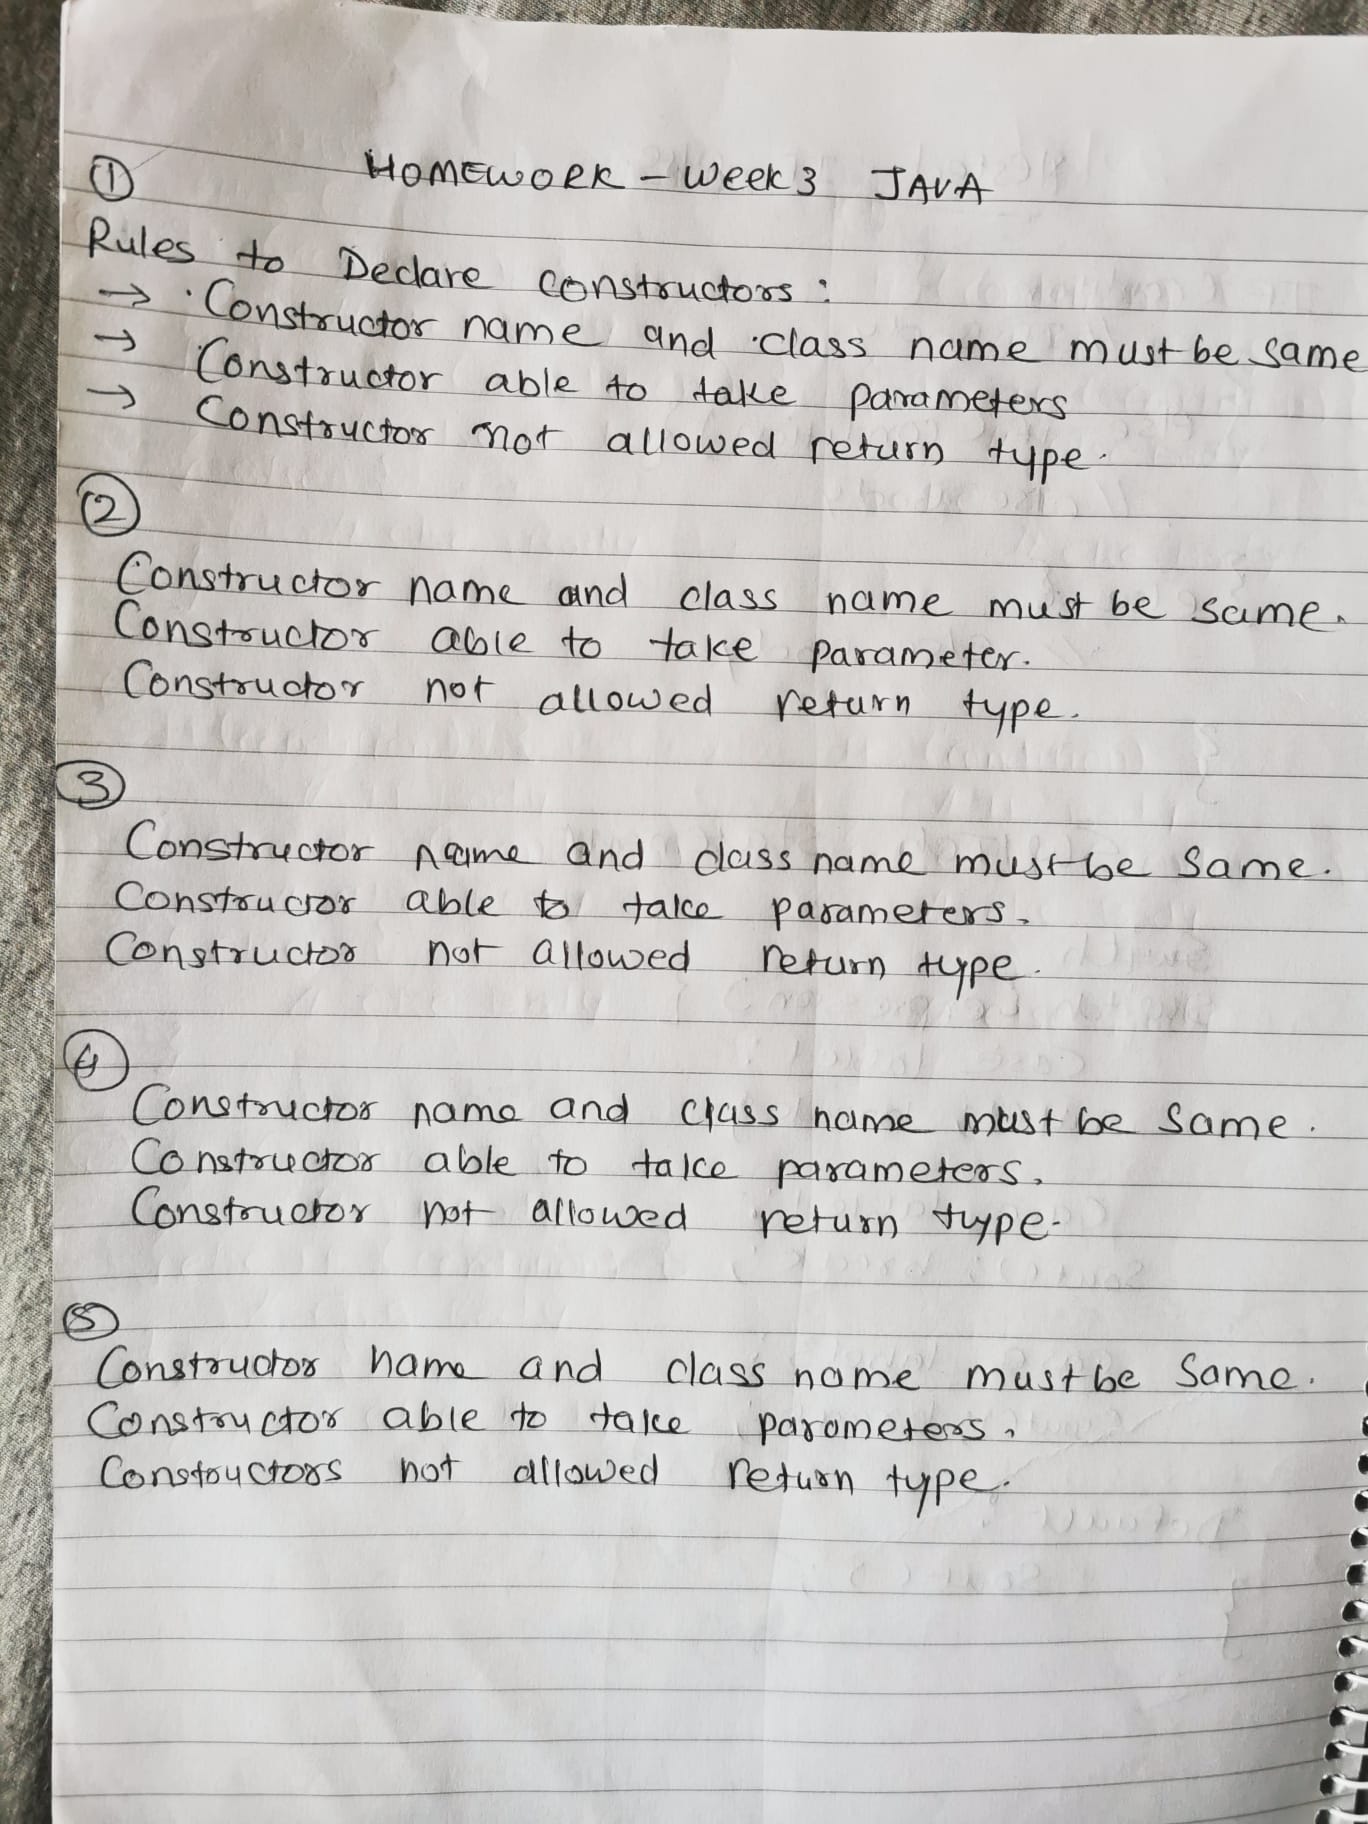 ① HOMEWORK - Week 3 JAVA
Rules to Declare constructors :
→ Constructor name and class name must be same
→ Constructor able to take parameters
→ Constructor not allowed return type.
②
Constructor name and class name must be same.
Constructor able to take parameter.
Constructor not allowed return type.
③
Constructor name and class name must be same.
Constructor able to take parameters.
Constructor not allowed return type.
④
Constructor name and class name must be same.
Constructor able to take parameters.
Constructor not allowed return type.
⑤
Constructor name and class name must be same.
Constructor able to take parameters.
Constructors not allowed return type.